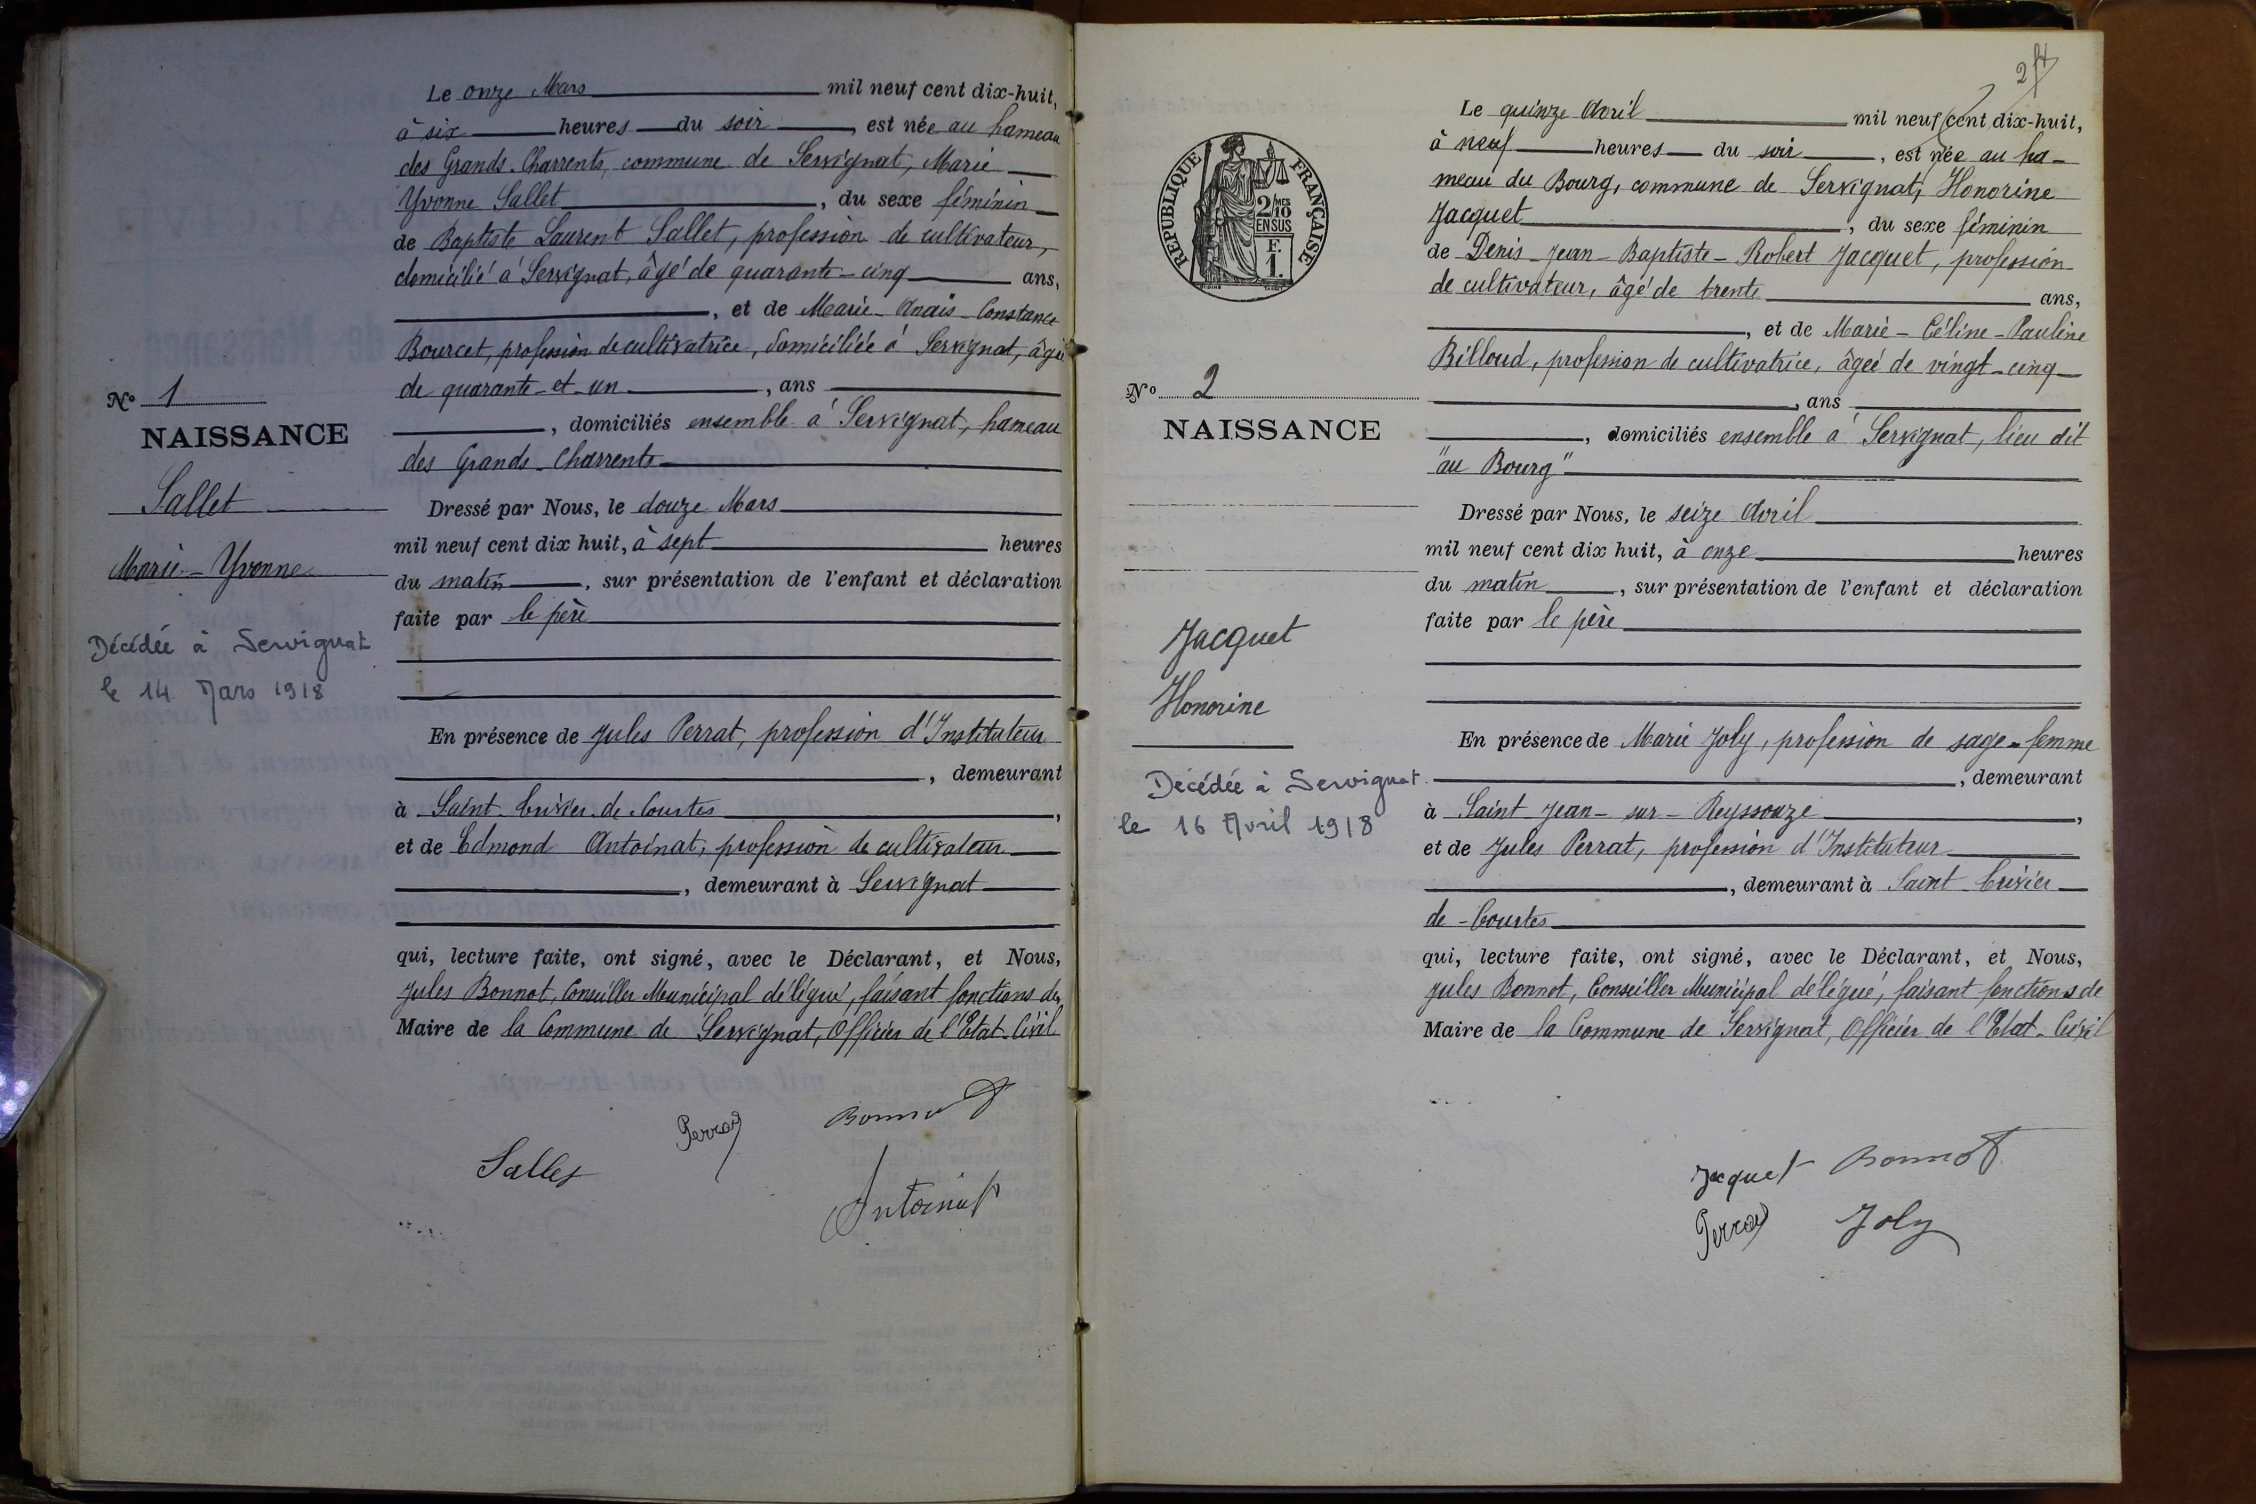 Le onze Mars mil neuf cent dix-huit,
à six heures du soir, est née au hameau
des Grands-Charrents, commune de Servignat, Marie
Yvonne Sallet, du sexe féminin
de Baptiste Laurent Sallet, profession de cultivateur,
domicilié à Servignat, âgé de quarante-cinq ans,
, et de Marie-Anaïs-Constance
Bourcet, profession de cultivatrice, domiciliée à Servignat, âgée
de quarante-et-un, ans
, domiciliés ensemble à Servignat, hameau
des Grands-Charrents
Dressé par Nous, le douze Mars
mil neuf cent dix huit, à sept heures
du matin, sur présentation de l'enfant et déclaration
faite par le père
En présence de Jules Perrat, profession d'Instituteur
, demeurant
à Saint-Trivier-de-Courtes,
et de Edmond Antoinat, profession de cultivateur
, demeurant à Servignat
qui, lecture faite, ont signé, avec le Déclarant, et Nous,
Jules Bonnot, Conseiller Municipal délégué, faisant fonctions de
Maire de la Commune de Servignat, Officier de l'Etat-Civil
Perrat Bonnot
Sallet
Antoinat
N° 1
NAISSANCE
Sallet
Marie-Yvonne
Décédée à Servignat
le 14 Mars 1918
2
Le quinze Avril mil neuf cent dix-huit,
à neuf heures du soir, est née au ha-
meau du Bourg, commune de Servignat, Honorine
Jacquet, du sexe féminin
de Denis-Jean-Baptiste-Robert Jacquet, profession
de cultivateur, âgé de trente ans,
, et de Marie-Céline-Pauline
Billoud, profession de cultivatrice, âgée de vingt-cinq
, ans
, domiciliés ensemble à Servignat, lieu dit
"au Bourg"
Dressé par Nous, le seize Avril
mil neuf cent dix huit, à onze heures
du matin, sur présentation de l'enfant et déclaration
faite par le père
En présence de Marie Joly, profession de sage-femme
, demeurant
à Saint-Jean-sur-Reyssouze,
et de Jules Perrat, profession d'Instituteur
, demeurant à Saint-Trivier
de-Courtes
qui, lecture faite, ont signé, avec le Déclarant, et Nous,
Jules Bonnot, Conseiller Municipal délégué, faisant fonctions de
Maire de la Commune de Servignat, Officier de l'Etat-Civil
Jacquet Bonnot
Perrat Joly
RÉPUBLIQUE FRANÇAISE
2/10 MES
EN SUS
F.
1.
N° 2
NAISSANCE
Jacquet
Honorine
Décédée à Servignat
le 16 Avril 1918